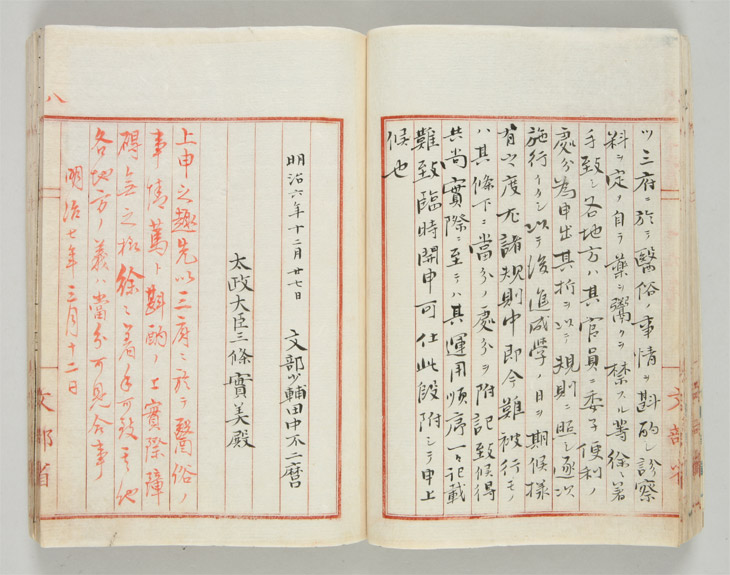 ツ三府ニ於テ醫俗ノ事情ヲ斟酌シ診察
料ヲ定ノ自テ藥ヲ鬻クヲ禁スル等徐々著
手致シ各地方ハ其官員ニ委子便利ノ
處分為申出其折ヲ以テ規則ニ照シ逐次
施行イタシ以テ後進成學ノ日ヲ期候樣
有之度尤諸規則中即今難被行モノ
ハ其條下ニ當分ノ處分ヲ附記致候得
共尚實際ニ至テハ其運用順序一々記載
難致臨時開申可仕此段附シテ申上
候也
明治六年十二月廿七日 文部少輔田中不二麿
太政大臣三條實美殿
上申之趣先以三府ニ於テ醫俗ノ
事情篤ト斟酌ノ上實際障
碍無之様徐々著手可致其他
各地方ノ義ハ當分可見合事
明治七年三月十二日
八
文部省
文部省